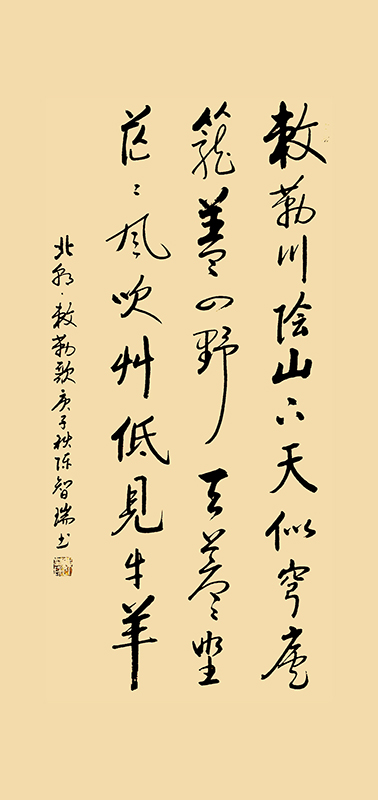 敕勒川陰山下天似穹廬
籠蓋四野天蒼〻埜
茫〻風吹艸低見牛羊
北朝·敕勒歌庚子秋陈智瑞书